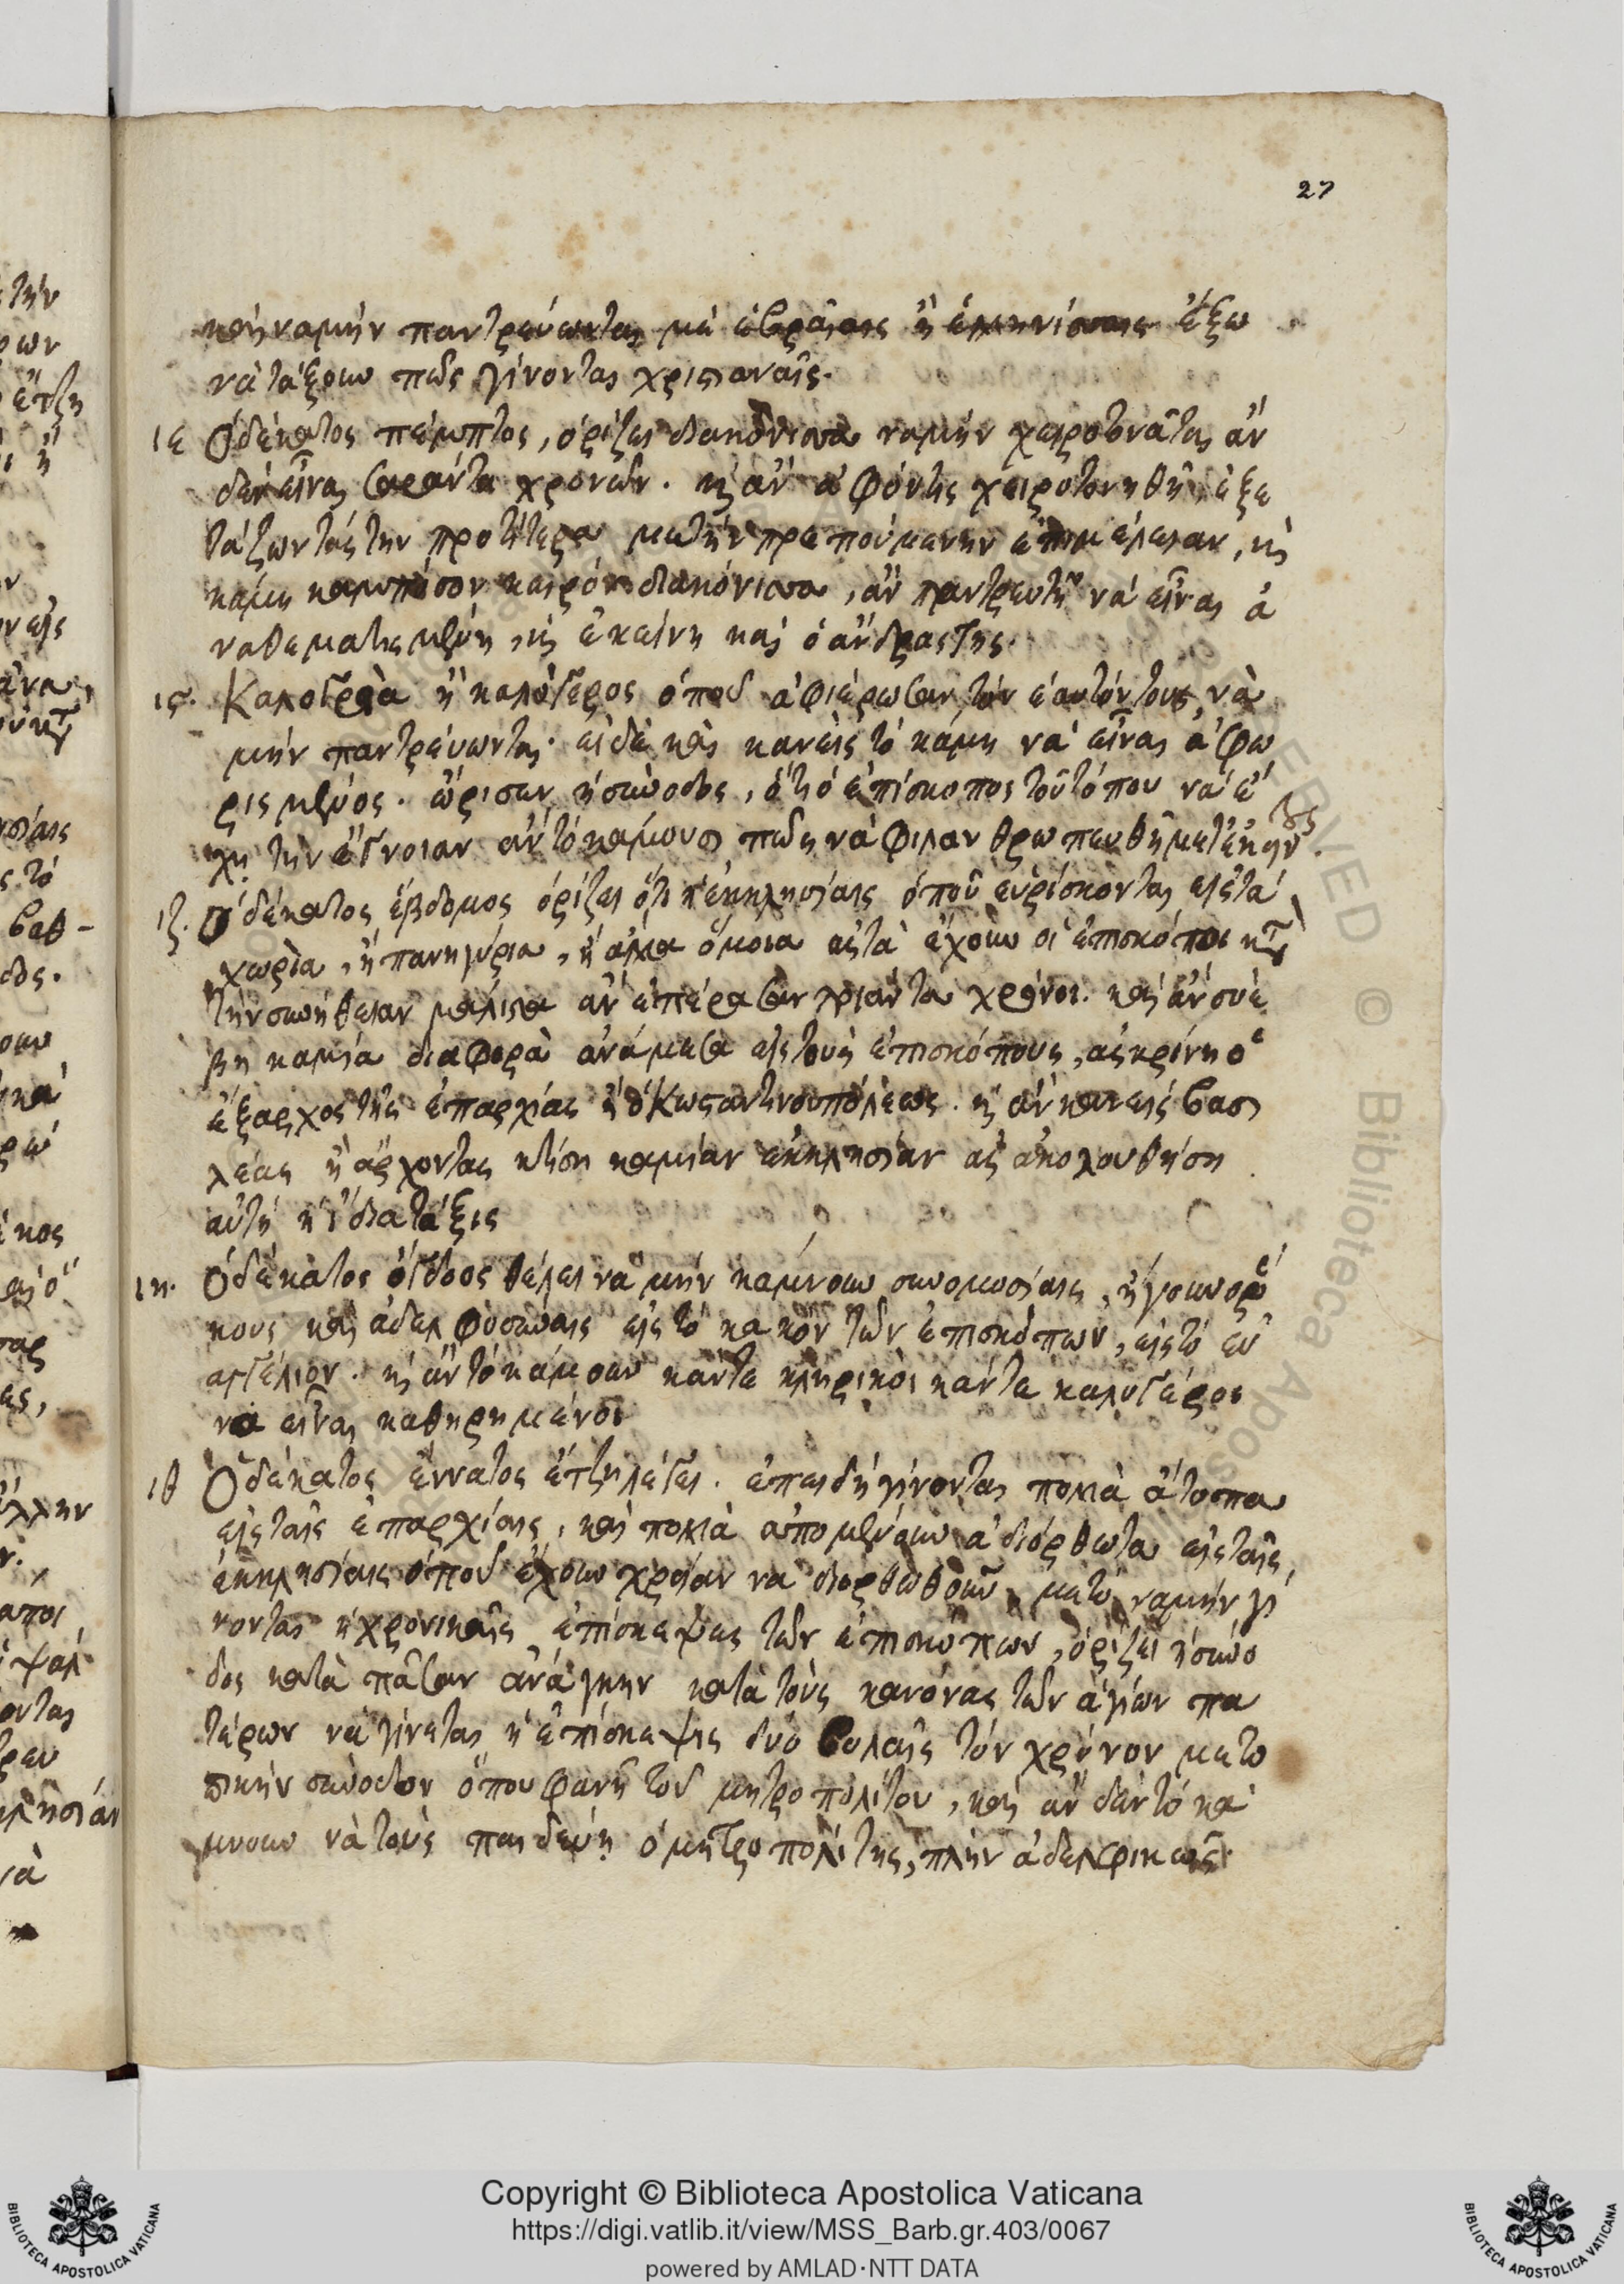 27
καὶ ναμὴν παντρεύωνται μὲ ἑβραίαις ἢ ἑλληνίσαις ἔξω
νὰ τάξουν πῶς γίνονται χριστιαναῖς.
ιε Ὁ δέκατος πέμπτος, ὁρίζει διακόνισσα ναμὴν χειροτονᾶται ἂν
δὲν εἶναι σαράντα χρονῶν. καὶ ἂν ἀφόντις χειροτονηθῆ, ἐξε
τάζωντάς την προτίτερα μετὴν πρεπούμενην ἐπιμέλειαν, καὶ
κάμει καμπόσον καιρὸν διακόνισσα, ἂν παντρευτῆ νὰ εἶναι ἀ
ναθεματισμένη, καὶ ἐκείνη καὶ ὁ ἄνδρας της.
ις. Καλογραία ἢ καλόγερος ὁποῦ ἀφιέρωσαν τὸν ἑαυτόν τους, νὰ
μὴν παντρεύωνται. εἰδὲ καὶ κανεὶς τὸ κάμη νὰ εἶναι ἀφω
ρισμένος. ὥρισαν ἡ σύνοδος, ὅτι ὁ ἐπίσκοπος τοῦ τόπου νὰ ἔ
χη τὴν ἔγνοιαν ἂν τὸ κάμουσι πῶς νὰ φιλανθρωπευθῆ μετ' ἐκείνους.
ιζ. Ὁ δέκατος ἕβδομος ὁρίζει ὅτι ἡ ἐκκλησίαις ὁποῦ εὑρίσκονται εἰς τὰ
χωρία, ἢ πανηγύρια, ἢ ἄλλα ὅμοια αὐτὰ ἔχουν οἱ ἐπισκόποι κατὰ
τὴν συνήθειαν μάλιστα ἂν ἐπέρασαν τριάντα χρόνοι. καὶ ἂν συέ
βη καμία διαφορὰ ἀνάμεσα εἰς τοὺς ἐπισκόπους, ἂς κρίνη ὁ
ἔξαρχος τῆς ἐπαρχίας ἢ ὁ Κωνσταντινουπόλεως. καὶ ἂν κανεὶς βασι
λέας ἢ ἄρχοντας κτίση καμίαν ἐκκλησίαν ἂς ἀκολουθήση
αὐτὴ ἡ διατάξις
ιη. Ὁ δέκατος ὄγδοος θέλει νὰ μὴν κάμνουν συνομωσίαις, ἤγουν ὅρ
κους καὶ ἀδελφοσύναις εἰς τὸ κακὸν τῶν ἐπισκόπων, εἰς τὸ εὐ
αγγέλιον. καὶ ἂν τὸ κάμουν κάντε κληρικοὶ κάντε καλογέροι
νὰ εἶναι καθηρημένοι
ιθ Ὁ δέκατος ἔννατος ἔτζη λέγει. ἐπειδὴ γίνονται πολλὰ ἄτοπα
εἰς ταῖς ἐπαρχίαις, καὶ πολλὰ ἀπομένουν ἀδιόρθωτα εἰς ταῖς
ἐκκλησίαις ὁποῦ ἔχουν χρείαν νὰ διορθωθοῦν, μετὸ ναμὴν γί
νονται ἡ χρονικαῖς ἐπίσκεψες τῶν ἐπισκόπων, ὁρίζει ἡ σύνο
δος κατὰ πᾶσαν ἀνάγκην κατὰ τοὺς κανόνας τῶν ἁγίων πα
τέρων νὰ γίνεται ἡ ἐπίσκεψις δυὸ βολαῖς τὸν χρόνον με το
πικὴν σύνοδον ὅπου φανῆ τοῦ μητροπολίτου, καὶ ἂν δὲν τὸ κά
μνουν νὰ τοὺς παιδεύη ὁ μητροπολίτης, πλὴν ἀδελφικῶς.
Copyright © Biblioteca Apostolica Vaticana
https://digi.vatlib.it/view/MSS_Barb.gr.403/0067
powered by AMLAD·NTT DATA